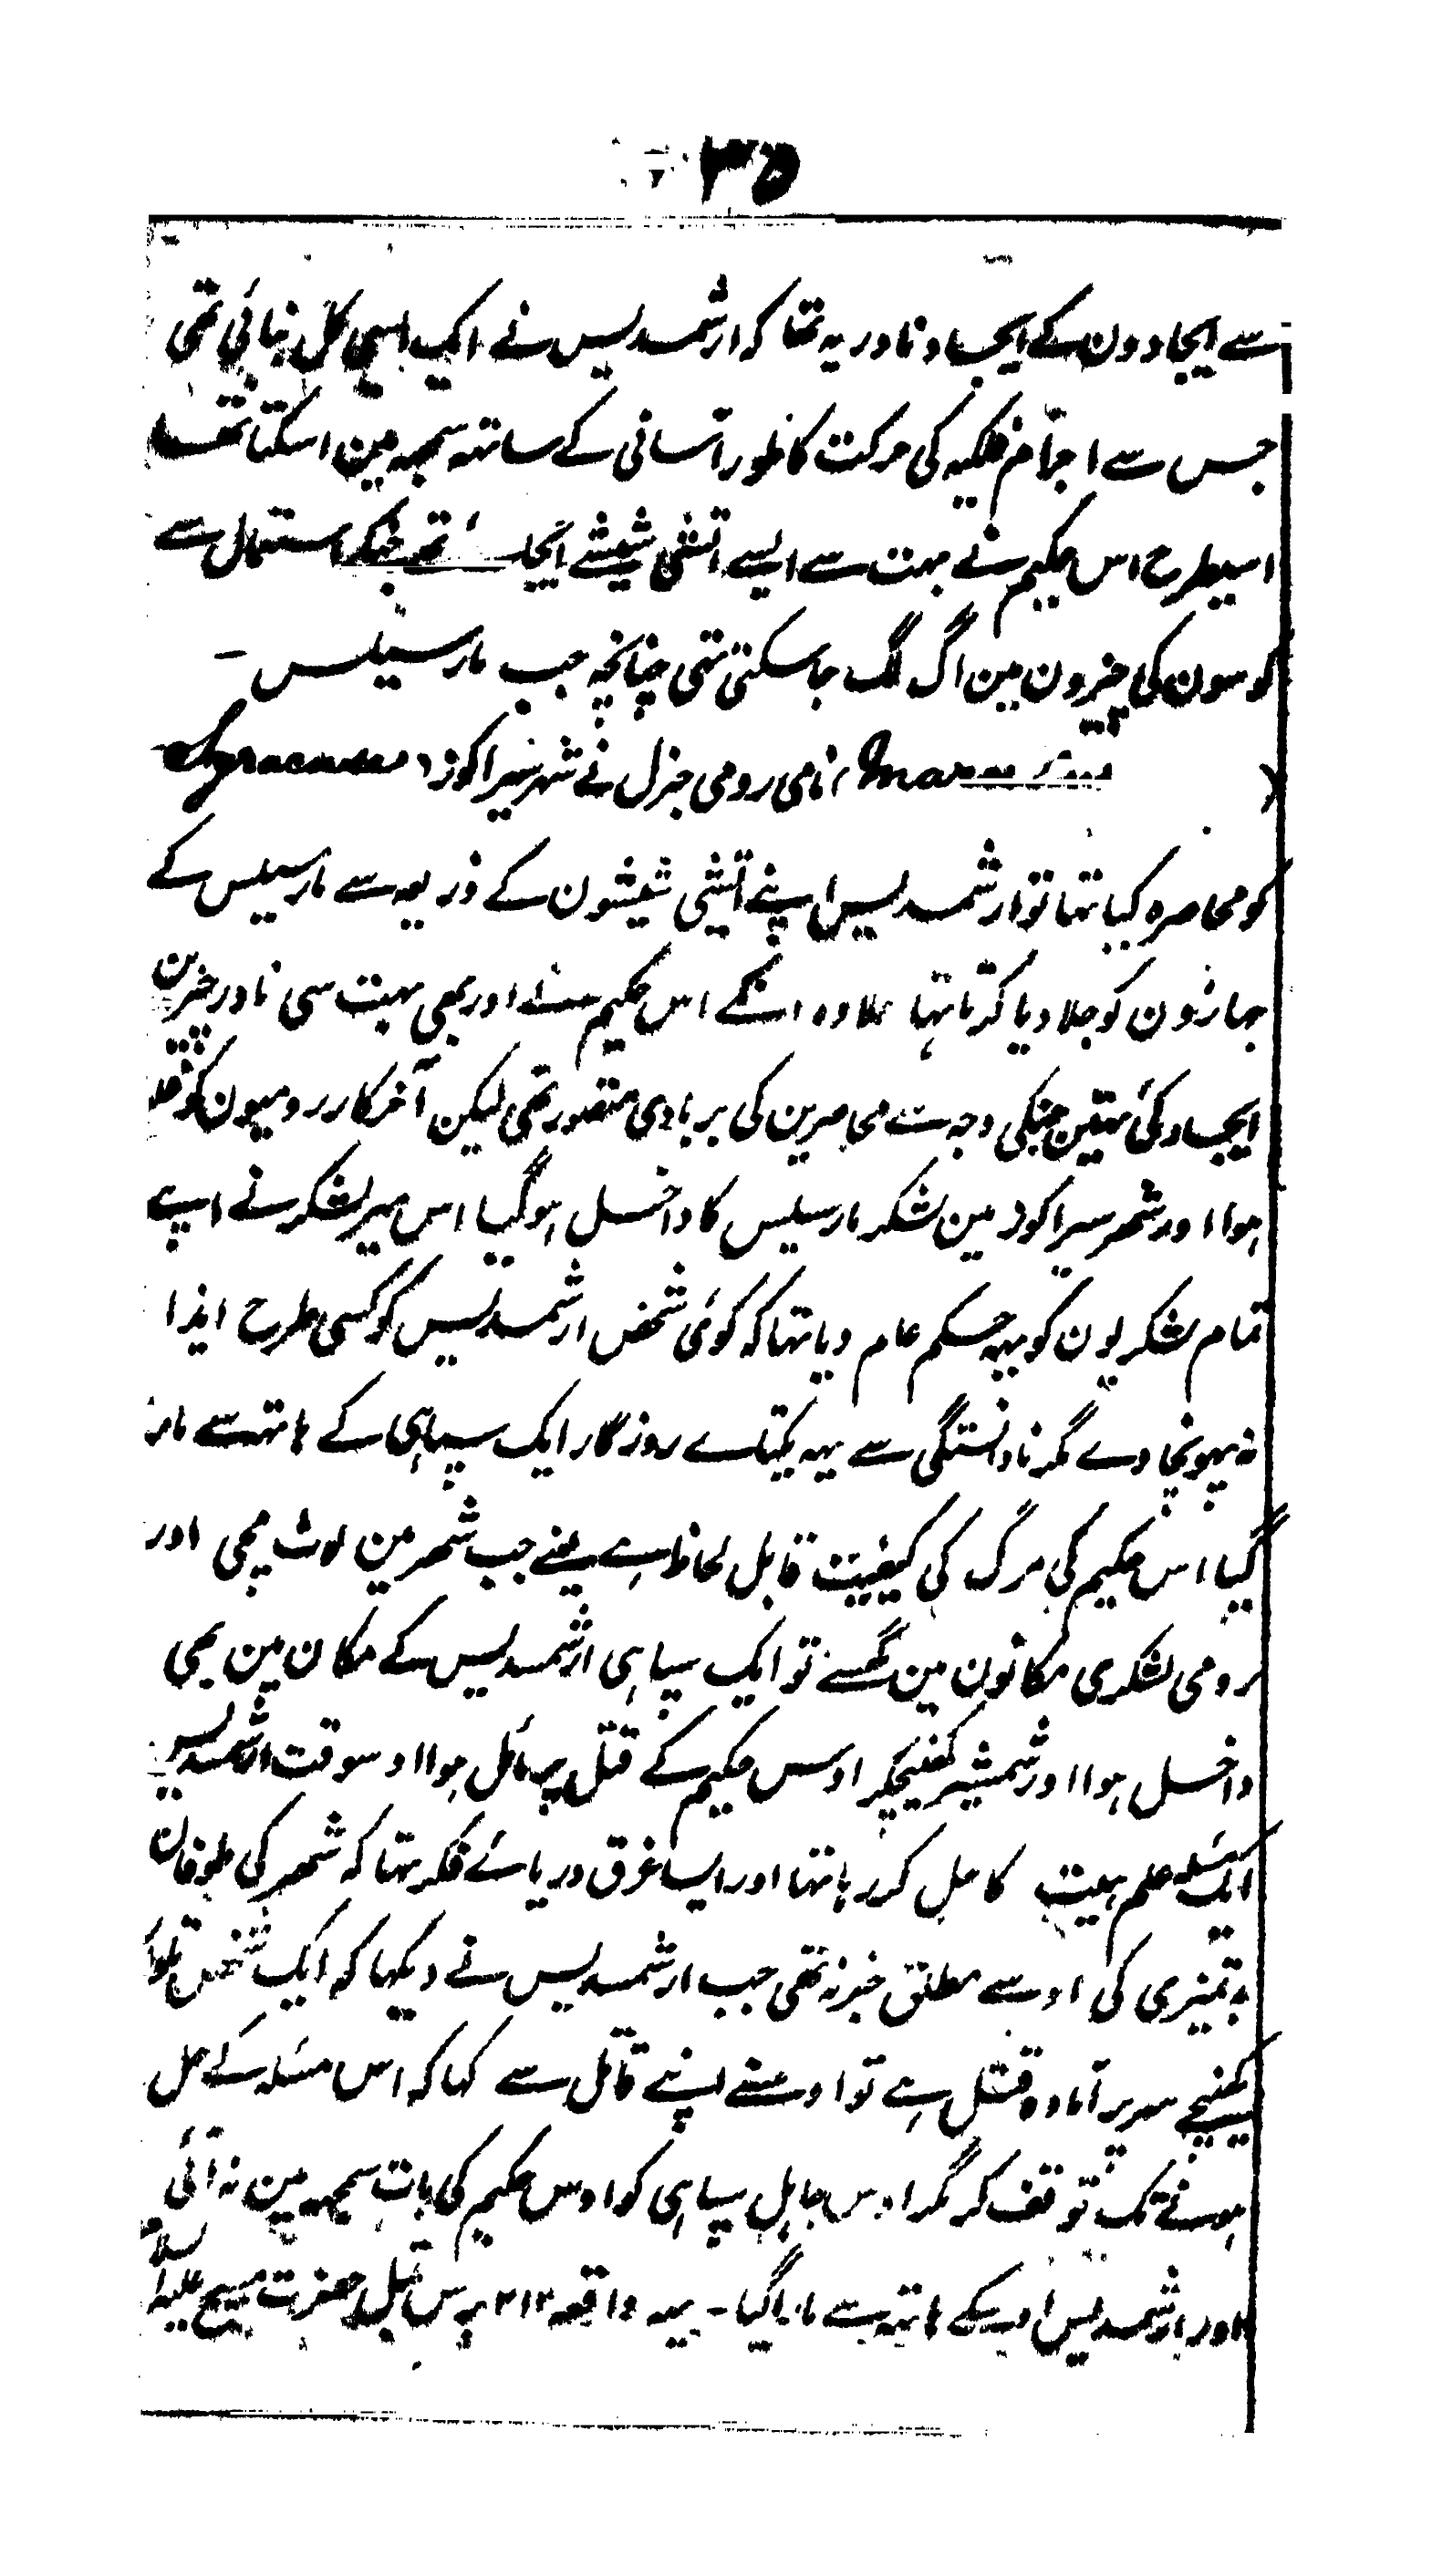 ۳۵
سے ایجادون کے ایجاد نادر یہ تھا کہ ارشمدیس نے ایک ایسی کل بنائی تھی
جس سے اجرام فلکیہ کی حرکت کا طور آسانی کے ساتہہ سمجہہ مین اسکتا تھا
اسیطرح اس حکیم نے بہت سے ایسے اتشی شیشے ایجاد تھے جنکے استعمال سے
کوسون کی چیزون مین اگ لگ جاسکتی تہی چنانچہ جب مارسیلس -
نامی رومی جنرل نے شہر سیراکوز (Syracuse
کو محاصرہ کیا تہا تو ارشمدیس اپنے اتشی شیشون کے ذریعہ سے مارسیلس کے
جہازون کو جلا دیا کرتا تہا علاوہ انکے اس حکیم نے اور بھی بہت سی نادر چیزین
ایجاد کی تہین جنکی وجہ سے محاصرین کی بربادی متصور تھی لیکن آخرکار رومیون کو غلبہ
ہوا اور شھر سیراکوز مین لشکر مارسیلس کا داخل ہوگیا اس میر لشکر نے اپنے
تمام لشکریون کو یہہ حکم عام دیا تہا کہ کوئی شخص ارشمدیس کو کسی طرح ایذا
نہ پہونچا دے مگر نادانستگی سے یہہ یکتاے روزگار ایک سپاہی کے ہاتہہ سے مارا
گیا اس حکیم کی مرگ کی کیفیت قابل لحاظ ہے یعنے جب شھر مین لوٹ مچی اور
رومی لشکری مکانون مین گھسے تو ایک سپاہی ارشمدیس کے مکان مین بھی
داخل ہوا اور شمشیر کھنیچکر اوس حکیم کے قتل پر مائل ہوا اوسوقت ارشمدیس
ایک مسئلہ علم ہیت کا حل کر رہا تہا اور ایسا غرق دریائے فکر تہا کہ شھر کی طوفان
بدتمیزی کی اوسے مطلق خبر نہ تھی جب ارشمدیس نے دیکہا کہ ایک شخص تلوار
کھنیچے سر پر آمادہ قتل ہے تو اوسنے اپنے قاتل سے کہا کہ اس مسئلہ کے حل
ہونے تک توقف کر مگر اوس جاہل سپاہی کو اوس حکیم کی بات سمجہہ مین نہ آئی
اور ارشمدیس اوسکے ہاتہہ سے مارا گیا - یہہ واقعہ ۲۱۲ برس قبل حضرت مسیح علیہ السلام